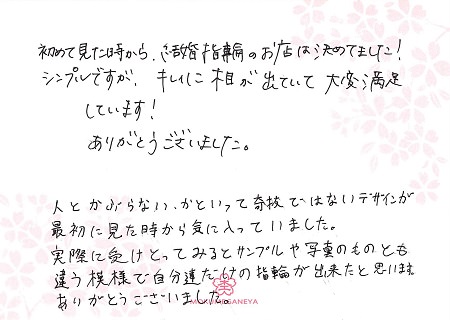 初めて見た時から、結婚指輪のお店は決めてました！
シンプルですが、キレイに木目が出ていて大変満足
しています！
ありがとうございました。
人とかぶらない、かといって奇抜ではないデザインが
最初に見た時から気に入っていました。
実際に受けとってみるとサンプルや写真のものとも
違う模様で自分達だけの指輪が出来たと思います。
ありがとうございました。
MOKUMEGANEYA